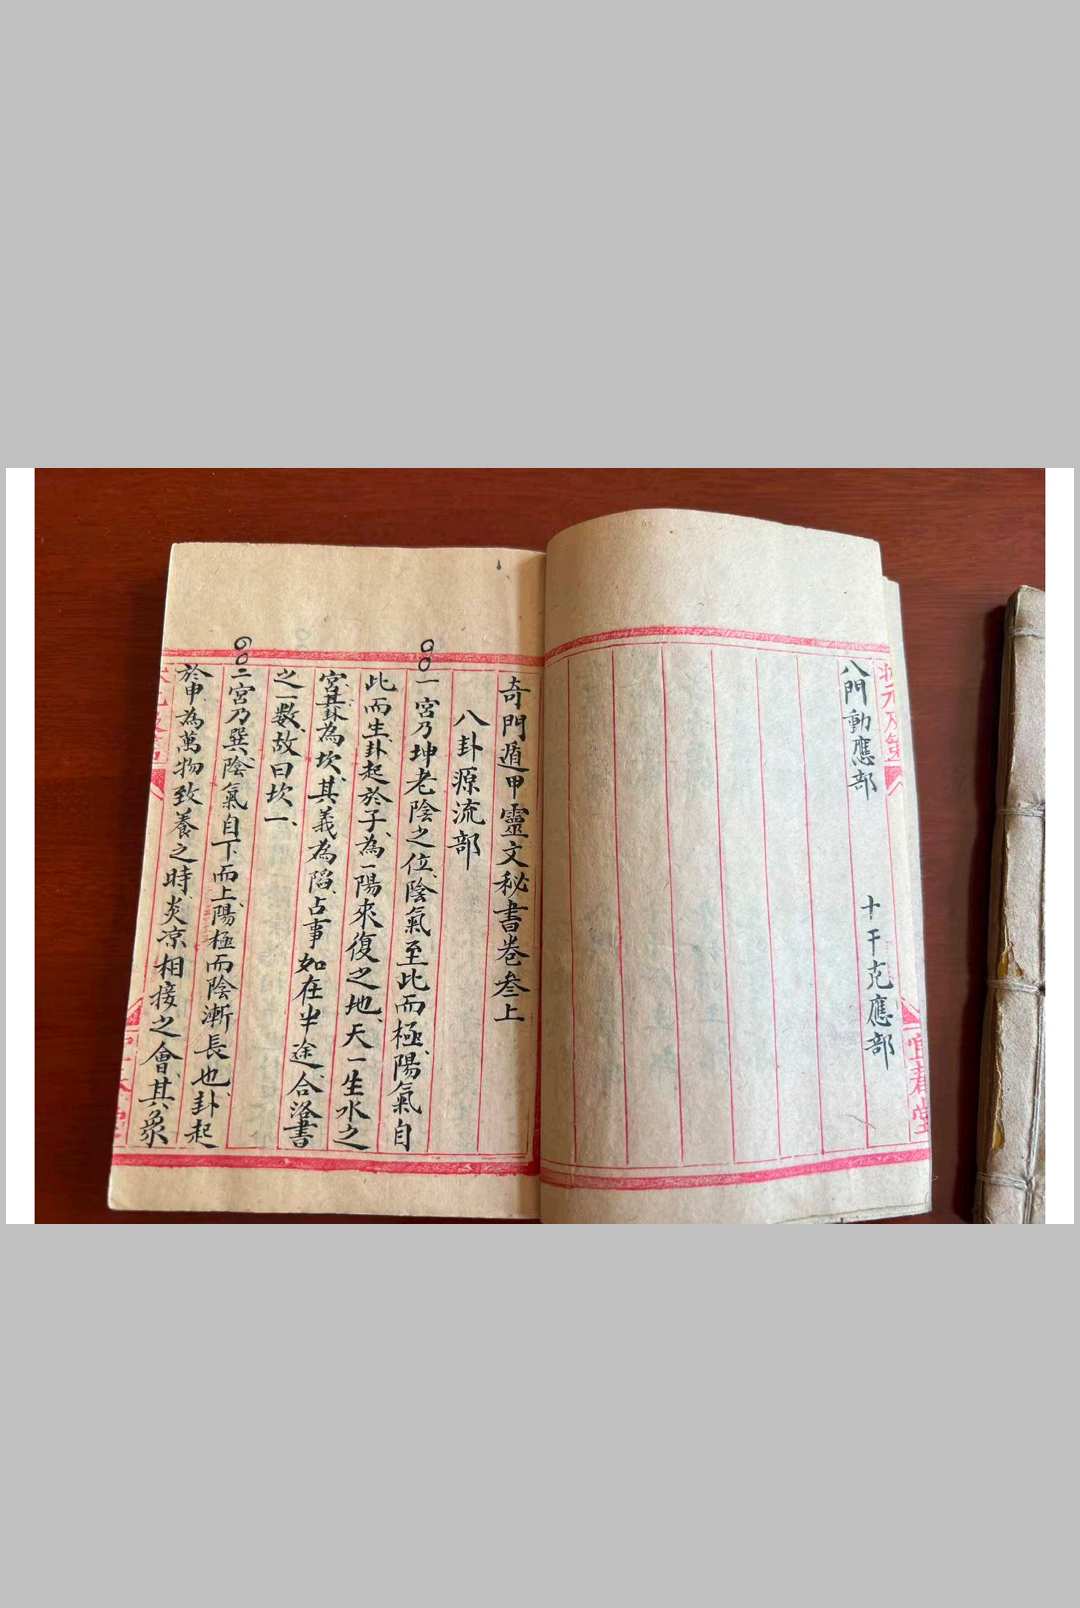 八門動應部　十干克應部
宜春堂
奇門遁甲靈文秘書卷叁上
八卦源流部
一宮乃坤老陰之位、陰氣至此而極、陽氣自
此而生、卦起於子、為一陽來復之地、天一生水之
宮、其卦為坎、其義為陷、占事如在半途、合洛書
之一數、故曰坎一、
二宮乃巽、陰氣自下而上、陽極而陰漸長也、卦起
於申、為萬物致養之時、炎凉相接之會、其象